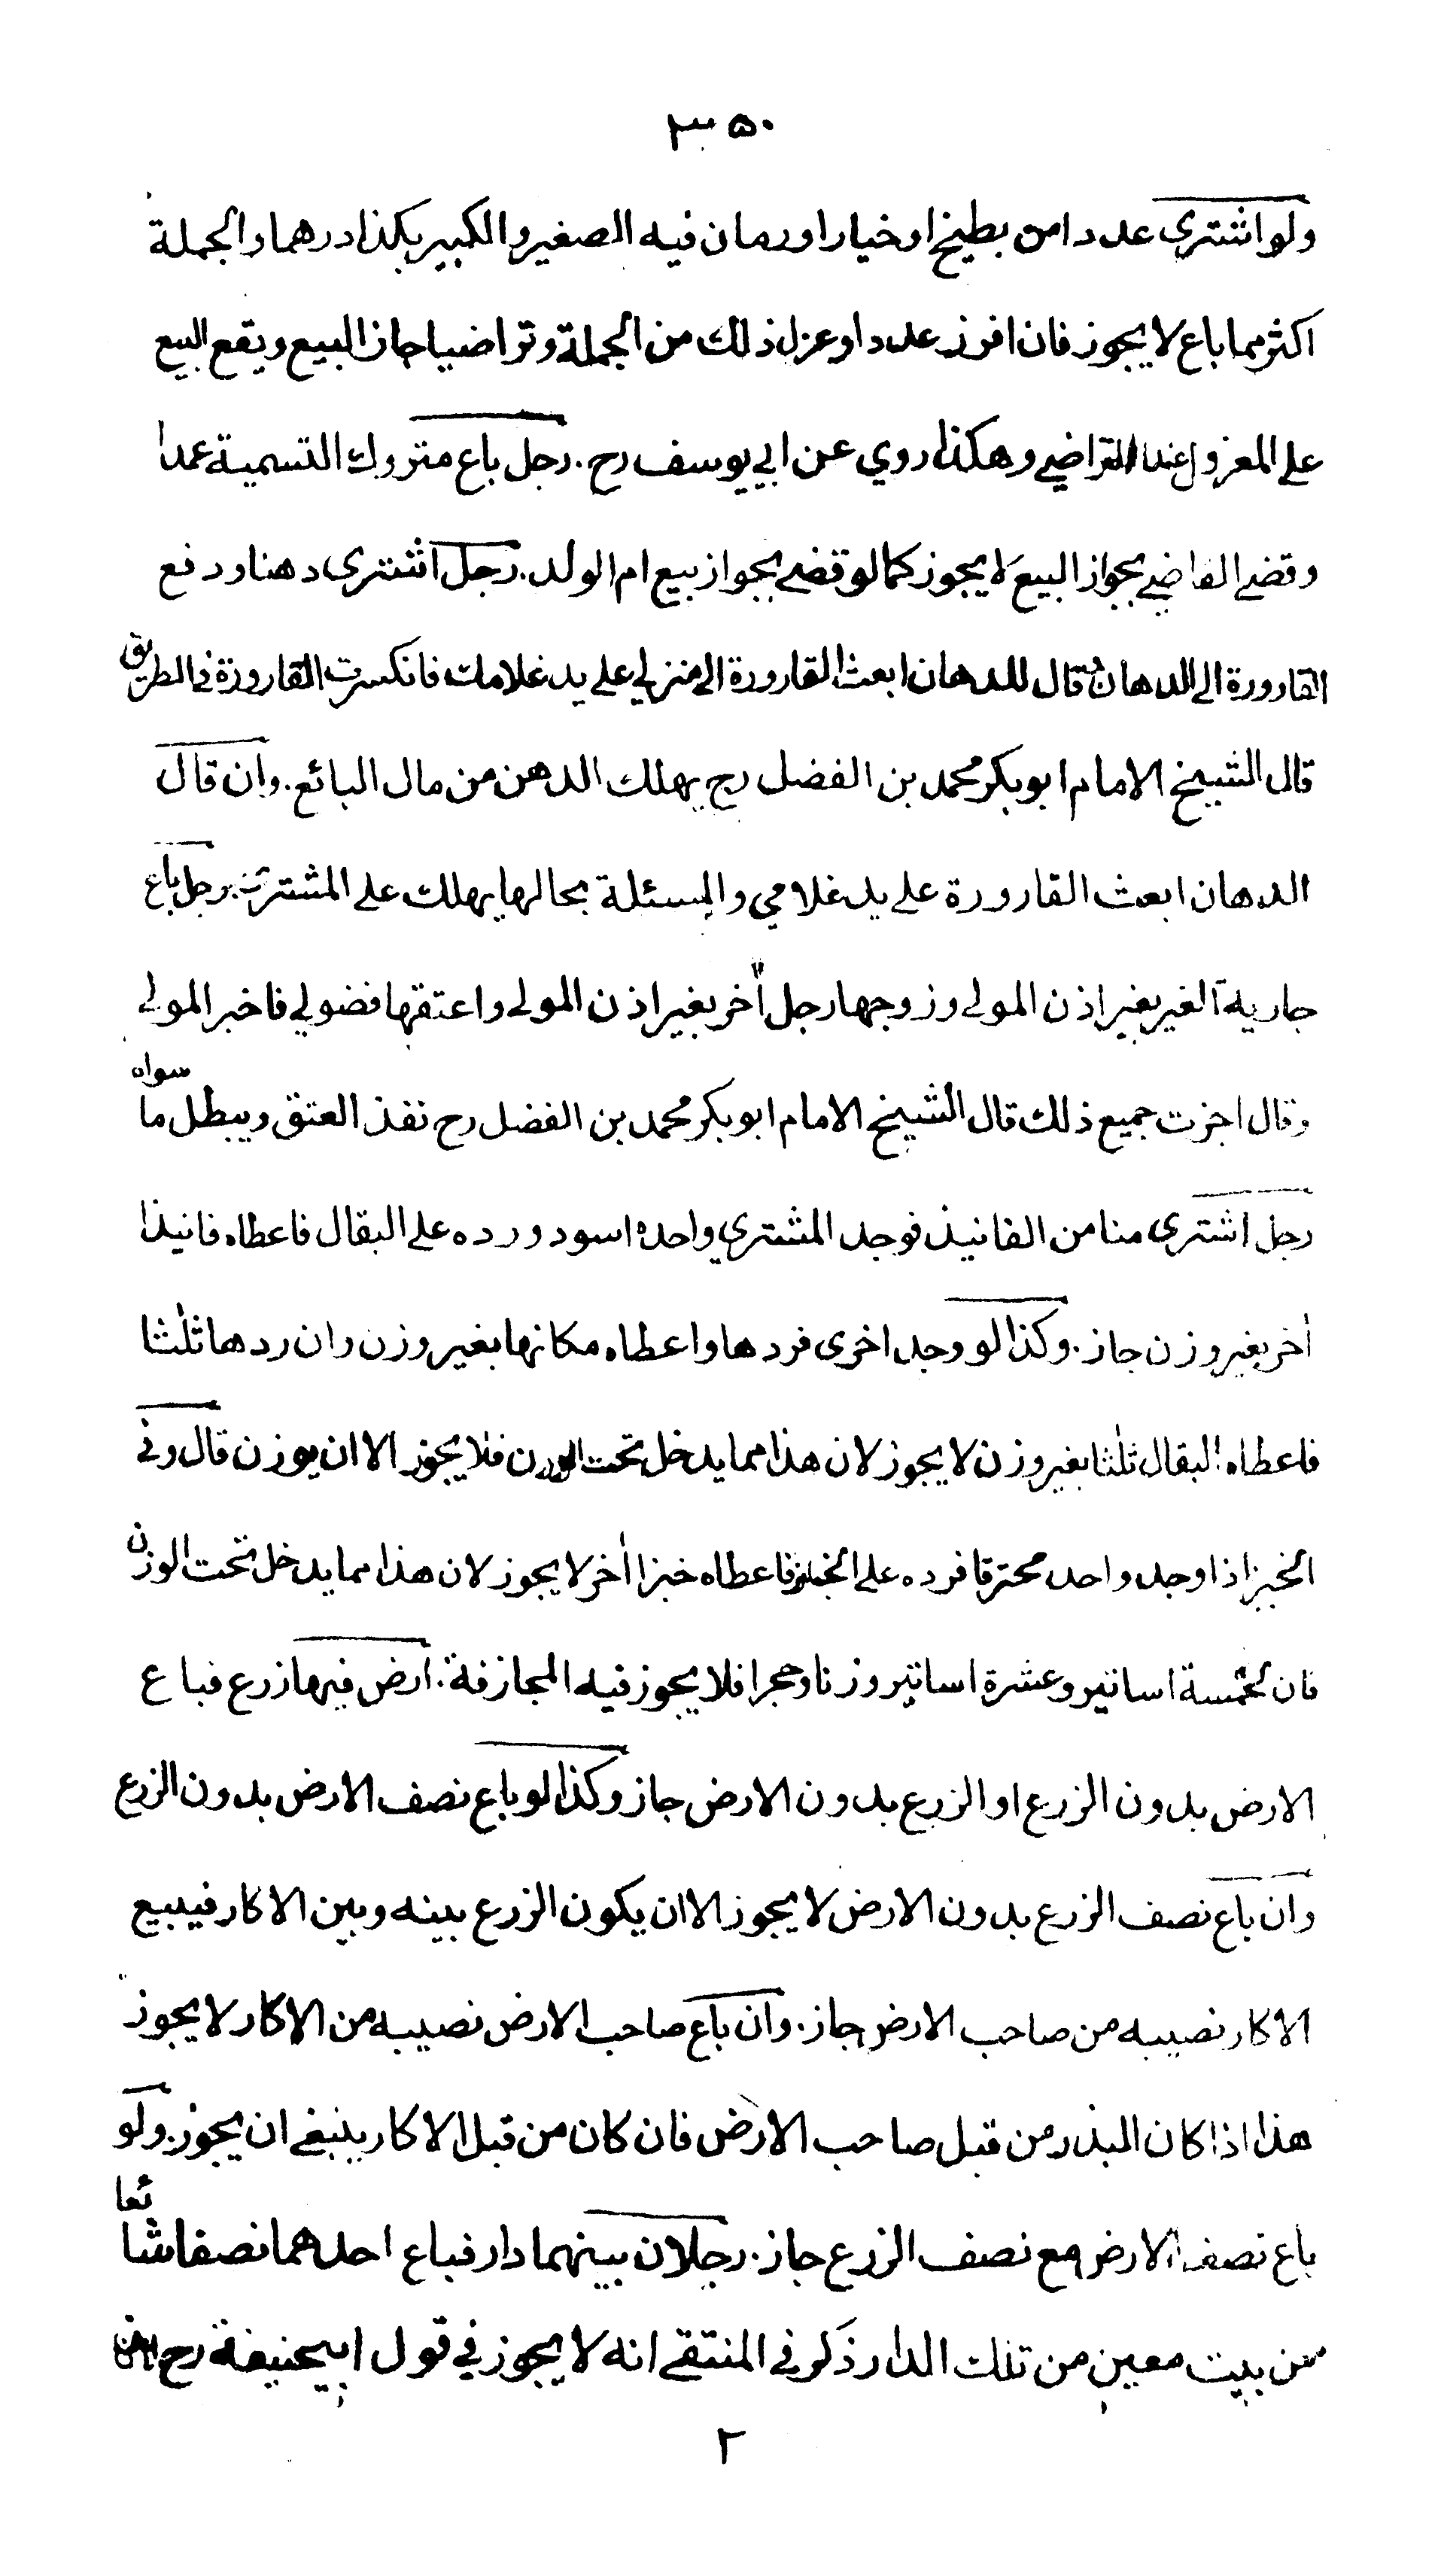 ٣٥٠
ولو اشترى عددا من بطيخ او خيار او رمان فيه الصغير والكبير بكذا درهما والجملة
اكثر مما باع لا يجوز فان افرز عددا وعزل ذلك من الجملة وتراضيا جاز البيع ويقع البيع
على المعزول عند التراضي وهكذا روي عن ابي يوسف رح . رجل باع متروك التسمية عمدا
وقضى القاضي بجواز البيع لا يجوز كما لو قضى بجواز بيع ام الولد . رجل اشترى دهنا ودفع
القارورة الى الدهان قال للدهان ابعث القارورة الى منزلي على يد غلامك فانكسرت القارورة في الطريق
قال الشيخ الامام ابو بكر محمد بن الفضل رح يهلك الدهن من مال البائع . وان قال
الدهان ابعث القارورة على يد غلامي والمسئلة بحالها يهلك على المشتري . رجل باع
جارية الغير بغير اذن المولى وزوجها رجل أخر بغير اذن المولى واعتقها فضولي فاخبر المولى
وقال اجزت جميع ذلك قال الشيخ الامام ابو بكر محمد بن الفضل رح نفذ العتق ويبطل ما سواه
رجل اشترى منا من الفانيذ فوجد المشتري واحدة اسود ورده على البقال فاعطاه فانيذا
أخر بغير وزن جاز . وكذا لو وجد اخرى فردها واعطاه مكانها بغير وزن وان ردها ثلثا
فاعطاه البقال ثلثا بغير وزن لا يجوز لان هذا مما يدخل تحت الوزن فلا يجوز الا ان يوزن قال وفي
الخبز اذا وجد واحد محترقا فرده على الخباز فاعطاه خبزا أخر لا يجوز لان هذا مما يدخل تحت الوزن
فان لخمسة اساتير وعشرة اساتير وزنا وحجرا فلا يجوز فيه المجازفة . ارض فيها زرع فباع
الارض بدون الزرع او الزرع بدون الارض جاز وكذا لو باع نصف الارض بدون الزرع
وان باع نصف الزرع بدون الارض لا يجوز الا ان يكون الزرع بينه وبين الاكار فيبيع
الاكار نصيبه من صاحب الارض جاز . وان باع صاحب الارض نصيبه من الاكار لا يجوز
هذا اذا كان البذر من قبل صاحب الارض فان كان من قبل الاكار ينبغي ان يجوز . ولو
باع نصف الارض مع نصف الزرع جاز . رجلان بينهما دار فباع احدهما نصفا شائعا
من بيت معين من تلك الدار ذكر في المنتقى انه لا يجوز في قول ابيحنيفة رح
٢